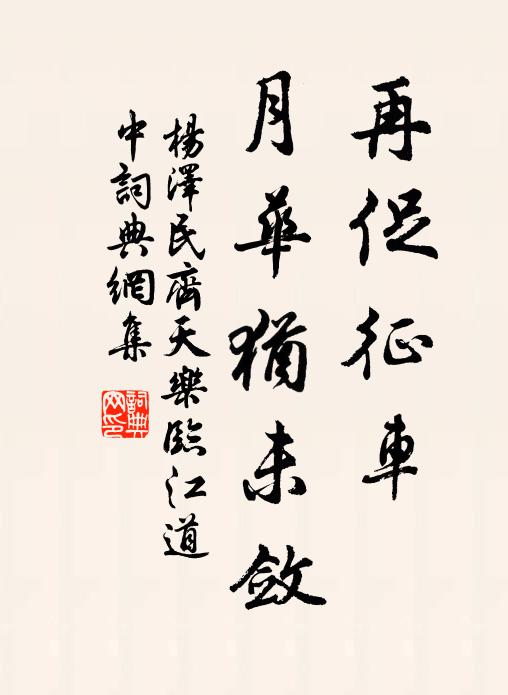 再促征車
月華猶未斂
楊澤民齊天樂臨江道
中詞典網集
詞典
网印